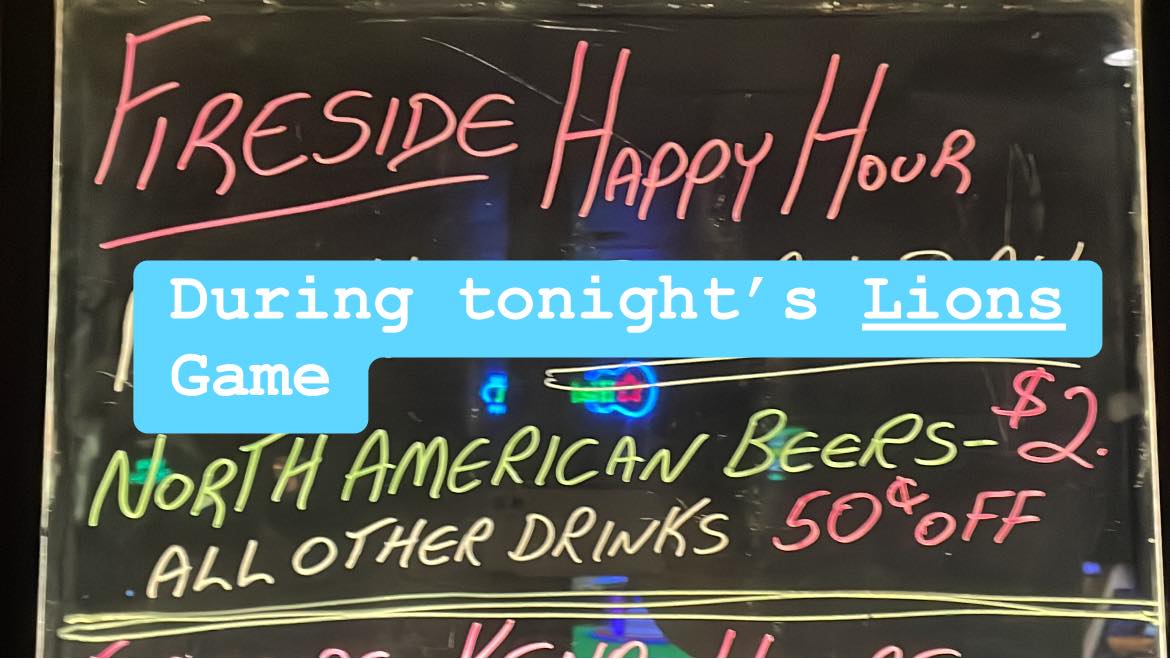 FIRESIDE HAPPY HOUR
During tonight’s Lions
Game
NORTH AMERICAN BEERS- $2.
ALL OTHER DRINKS 50¢ OFF